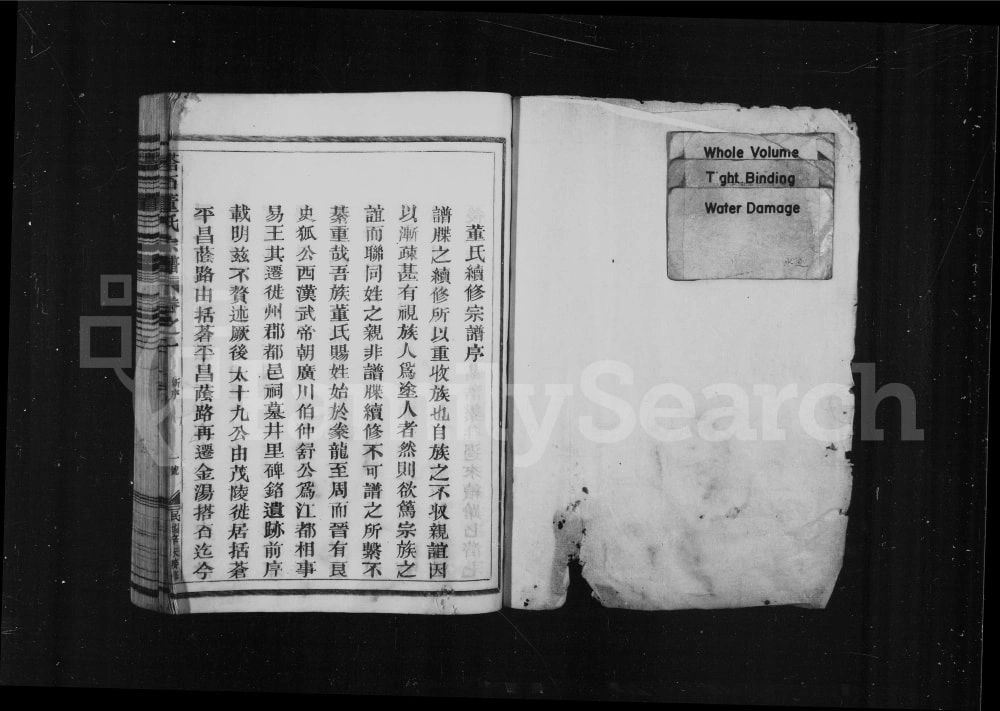 Whole Volume
Tight Binding
Water Damage
董氏續修宗譜序
譜牒之續修所以重收族也自族之不収親誼因
以漸疎甚有視族人爲途人者然則欲篤宗族之
誼而聯同姓之親非譜牒續修不可譜之所繫不
綦重哉吾族董氏賜姓始於豢龍至周而晉有良
史狐公西漢武帝朝廣川伯仲舒公爲江都相事
易王其遷徙州郡都邑祠墓井里碑銘遺跡前序
載明茲不贅述厥後太十九公由茂陵徙居括蒼
平昌蔭路由括蒼平昌蔭路再遷金湯搭石迄今
FamilySearch